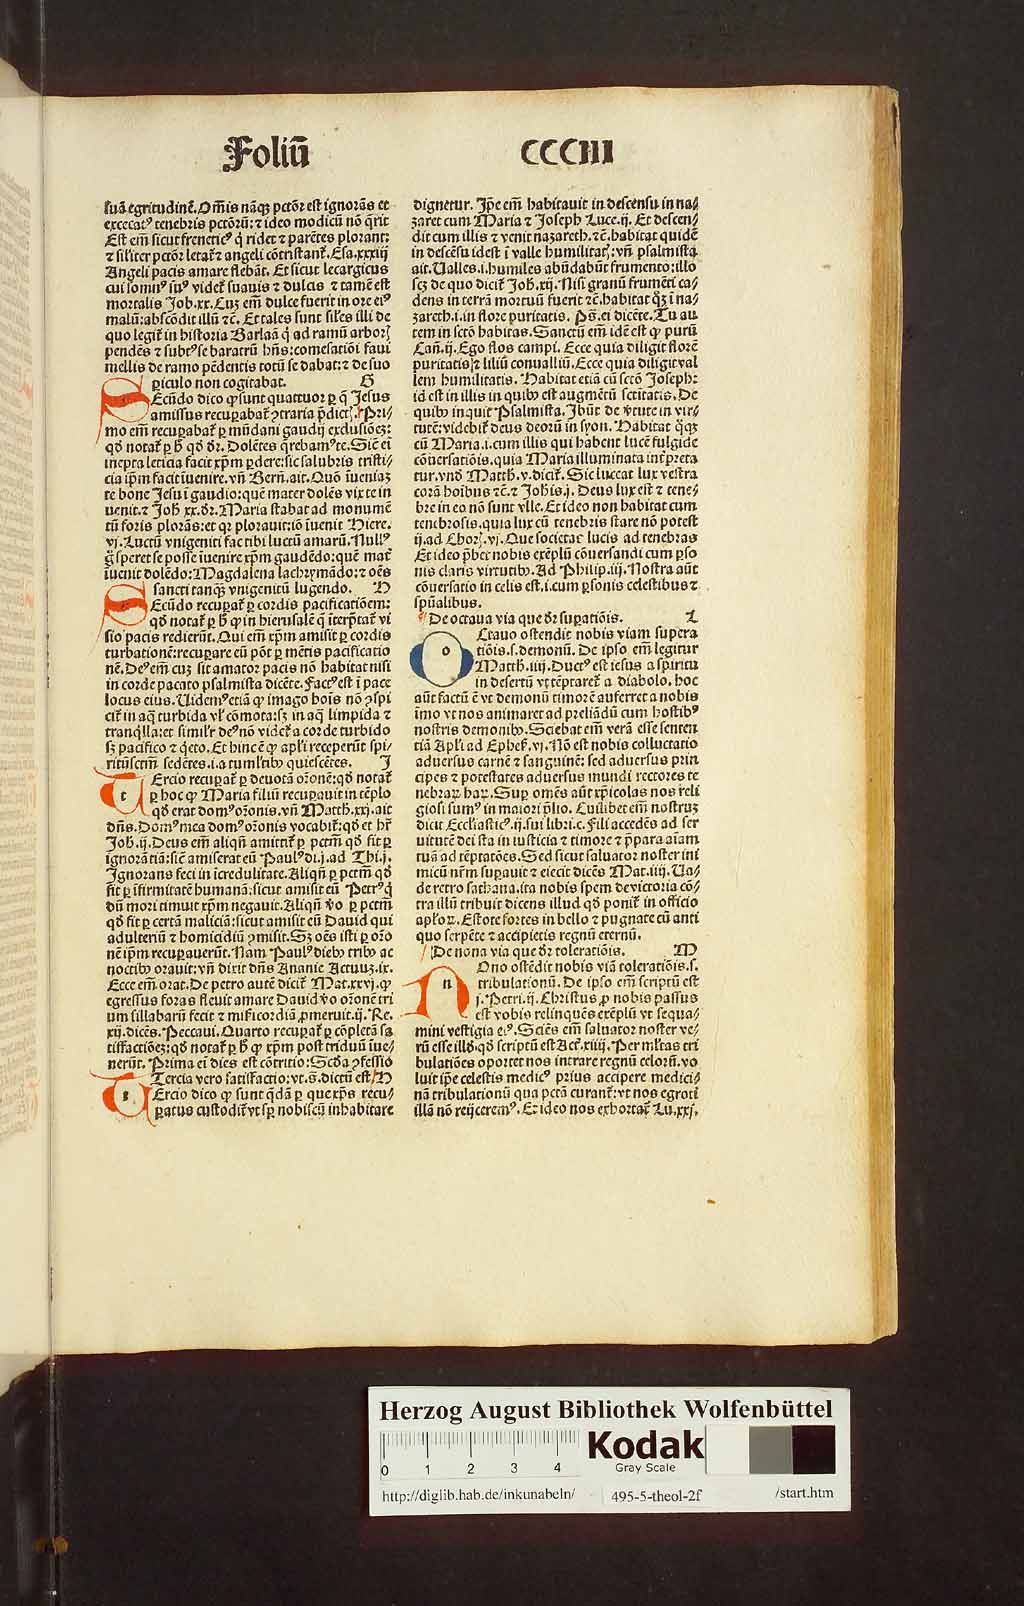 Foliū CCCIII
suā egritudinē. Om̄is nāqꝫ pctōr est ignorās et
excecatꝰ tenebris pctōrū: ⁊ ideo modicū nō q̄rit
Est em̄ sicut freneticꝰ q̇ ridet ⁊ parētes plorant:
⁊ siliter pctōr letat̄ ⁊ angeli cōtristant̄. Esa.xxxiij
Angeli pacis amare flebāt. Et sicut lecargicus
cui somnꝰ suꝰ videt̄ suauis ⁊ dulcis ⁊ tamē est
mortalis Job.xx. Cuꝫ em̄ dulce fuerit in ore eiꝰ
malū: abscōdit illū ⁊c. Et tales sunt siles illi de
quo legit̄ in historia Barlaā q̇ ad ramū arborꝭ
pendēs ⁊ subtꝰ se baratrū hn̄s: comestiōi faui
mellis de ramo pēdentis totū se dabat: ⁊ de suo
ꝑiculo non cogitabat. G
SEcūdo dico ꝙ sunt quattuor ꝑ q̄ Jesus
amissus recuꝑabat̄ ꝯtraria p̄dictꝭ. Pri/
mo em̄ recuꝑabat̄ ꝑ mūdani gaudij exclusiōeꝫ:
qd̄ notat̄ ꝑ h̄ qd̄ dr̄. Dolētes q̄rebamꝰ te. Sic ēi
inepta leticia facit xp̄m ꝑdere: sic salubris tristi/
cia ip̄m facit īuenire. vn̄ Bern̄. ait. Quō īueniaꝫ
te bone Jesu ī gaudio: quē mater dolēs vix te in
uenit. ⁊ Joh̄ xx. dr̄. Maria stabat ad monumē
tū foris plorās: et qr plorauit: iō īuenit Hiere.
vj. Luctū vnigeniti fac tibi luctū amarū. Nullꝰ
g̊ speret se posse īuenire xp̄m gaudēdo: quē mat̄
īuenit dolēdo: Magdalena lachrymādo: ⁊ oēs
sancti tanqꝫ vnigenitū lugendo. H
SEcūdo recuꝑat̄ ꝑ cordis pacificatiōem:
qd̄ notat̄ ꝑ h̄ ꝙ in hierusalē q̄ iterp̄tat̄ vi
sio pacis redierūt. Qui em̄ xp̄m amisit ꝑ cordis
turbationē: recuꝑare eū pōt ꝑ mētis pacificatio
nē. Deꝰ em̄ cuꝫ sit amator pacis nō habitat nisi
in corde pacato psalmista dicēte. Factꝰ est ī pace
locus eius. Uidemꝰ etiā ꝙ imago hoīs nō ꝯspi
cit̄ in aq̄ turbida vl̓ cōmota: sꝫ in aq̄ limpida ⁊
tranq̇lla: et simil̓r deꝰ nō videt̄ a corde turbido
sꝫ pacifico ⁊ q̇eto. Et hinc ē ꝙ apl̓i receperūt spi/
ritūsctm̄ sedētes.i. a tumltib̄ quiescētes. J
TErcio recuꝑat̄ ꝑ deuotā orōnē: qd̄ notat̄
ꝑ hoc ꝙ Maria filiū recuꝑauit in tēplo
qd̄ erat domꝰ orōnis. vn̄ Matth̄. xxj. ait
dn̄s. Domꝰ mea domꝰ orōnis vocabit̄: qd̄ et hr̄
Joh̄. ij. Deus em̄ aliqn̄ amittit̄ ꝑ pctm̄ qd̄ fit ꝑ
ignorātiā: sic amiserat eū Paulꝰ di. j. ad Thi. j.
Ignorans feci in īcredulitate. Aliqn̄ ꝑ pctm̄ qd̄
fit ꝑ īfirmitatē humanā: sicut amisit eū Petrꝰ q̇
dū mori timuit xp̄m negauit. Aliqn̄ v̊o ꝑ pctm̄
qd̄ fit ꝑ certā maliciā: sicut amisit eū Dauid qui
adulteriū ⁊ homicidiū ꝯmisit. Sꝫ oēs isti ꝑ orō
nē ip̄m recuꝑauerūt. Nam Paulꝰ dieb̄ trib̄ ac
noctib̄ orauit: vn̄ dixit dn̄s Ananie Actuuꝫ. ix.
Ecce em̄ orat. De petro autē dicit̄ Mat. xxvj. ꝙ
egressus foras fleuit amare Dauid v̊o orōnē tri
um sillabarū fecit ⁊ misericordiā ꝓmeruit. ij. Re.
xij. dicēs. Peccaui. Quarto recuꝑat̄ ꝑ cōpletā sa
tisfactiōeꝫ: qd̄ notat̄ ꝑ h̄ ꝙ xp̄m post triduū īue/
nerūt. Prima ei dies est cōtritio: Scd̄a ꝯfessio
Tercia vero satisfactio: vt. s. dictū est. K
TErcio dico ꝙ sunt q̄dā ꝑ que xp̄s recu/
ꝑatus custodit̄ vt sꝑ nobiscū inhabitare
dignetur. Ip̄e em̄ habitauit in descensu in na/
zaret cum Maria ⁊ Joseph Luce. ij. Et descen/
dit cum illis ⁊ venit nazareth. ⁊c. habitat quidē
in descēsu idest ī valle humilitatꝭ: vn̄ psalmista
ait. Ualles .i. humiles abūdabūt frumento: illo
scꝫ de quo dicit̄ Joh̄. xij. Nisi granū frumēti ca/
dens in terrā mortuū fuerit ⁊c. habitat qꝫ ī na/
zareth .i. in flore puritatis. Ps̄. ei dicēte. Tu au
tem in sctō habitas. Sanctū em̄ idē est ꝙ purū
Can̄. ij. Ego flos campi. Ecce quia diligit florē
puritatis ⁊ liliū conualliū. Ecce quia diligit val
lem humilitatis. Habitat etiā cū sctō Joseph:
id est in illis in quib̄ est augmētū sctitatis. De
quib̄ inquit Psalmista. Ibūt de v̓tute in vir/
tutē: videbit̄ deus deorū in syon. Habitat q̄qꝫ
cū Maria .i. cum illis qui habent lucē fulgide
cōuersatiōis. quia Maria illuminata int̓preta
tur. vnd̄ Matth̄. v. dicit̄. Sic luceat lux vestra
corā hoībus ⁊c. ⁊ Joh̄is. j. Deus lux est ⁊ tene/
bre in eo nō sunt vlle. Et ideo non habitat cum
tenebrosis. quia lux cū tenebris stare nō potest
ij. ad Chorꝭ. vj. Que societas lucis ad tenebras
Et ideo p̄bet nobis exēplū cōuersandi cum ꝑso
nis claris virtutib̄. Ad Philip. iij. Nostra aūt
cōuersatio in celis est. i. cum ꝑsonis celestibus ⁊
spūalibus.
De octaua via que dr̄ suꝑatiōis. L
OCtauo ostendit nobis viam supera
tiōis. s. demonū. De ipso em̄ legitur
Matth̄. iiij. Ductꝰ est iesus a spiritu
in desertū vt tēptaret̄ a diabolo. hoc
aūt factū ē vt demonū timorē auferret a nobis
īmo vt nos animaret ad preliādū cum hostibꝰ
nostris demonib̄. Sciebat em̄ verā esse senten
tiā Apl̓i ad Ephes̄. vj. Nō est nobis colluctatio
aduersus carnē ⁊ sanguinē: sed aduersus prin
cipes ⁊ potestates aduersus mundi rectores te
nebraꝝ haꝝ. Suꝑ omēs aūt xp̄icolas nos reli
giosi sumꝰ in maiori p̄lio. Cuilibet em̄ nostruꝫ
dicit Ecclīasticꝰ. ij. sui libri. c. Fili accedēs ad ser
uitutē dei sta in iusticia ⁊ timore ⁊ p̄para aīam
tuā ad tēptatōes. Sed sicut saluator noster ini
micū nr̄m suꝑauit ⁊ eiecit dicēs Mat. iiij. Ua/
de retro sathana. ita nobis spem de victoria cō/
tra illū tribuit dicens illud qd̄ ponit̄ in officio
apl̓oꝝ. Estote fortes in bello ⁊ pugnate cū anti
quo serpēte ⁊ accipietis regnū eternū.
De nona via que dr̄ toleratiōis. M
NOno ostēdit nobis viā toleratiōis. s.
tribulationū. De ipso em̄ scriptū est
j. Petri. ij. Christus ꝓ nobis passus
est vobis relinquēs exēplū vt sequa/
mini vestigia eiꝰ. Sciēs em̄ saluator noster ve/
rū esse illd̄. qd̄ scriptū est Act̄. xiiij. Per mltas tri
bulatiōes oportet nos intrare regnū celorū. vo
luit ip̄e celestis medicꝰ prius accipere medici/
nā tribulationū qua pctā curant̄: vt nos egroti
illā nō reijceremꝰ. Et ideo nos exhortat̄ Lu. xxj.
Herzog August Bibliothek Wolfenbüttel
0 1 2 3 4
Kodak
Gray Scale
http://diglib.hab.de/inkunabeln/ 495-5-theol-2f /start.htm